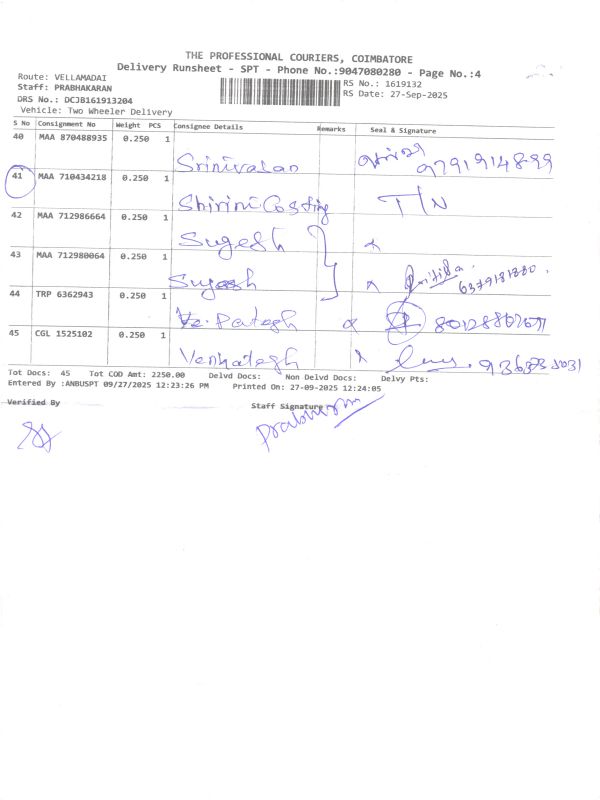 THE PROFESSIONAL COURIERS, COIMBATORE
Delivery Runsheet - SPT - Phone No.:9047080280 - Page No.:4
Route: VELLAMADAI
Staff: PRABHAKARAN
RS No.: 1619132
DRS No.: DCJB161913204
RS Date: 27-Sep-2025
Vehicle: Two Wheeler Delivery
S No Consignment No Weight PCS Consignee Details Remarks Seal & Signature
40 MAA 870488935 0.250 1 Srinivasan
41 MAA 710434218 0.250 1 Shirini Costing T/N
42 MAA 712986664 0.250 1 Sugesh x
43 MAA 712980064 0.250 1 Sugesh x
44 TRP 6362943 0.250 1
45 CGL 1525102 0.250 1 Venkatesh x
Tot Docs: 45 Tot COD Amt: 2250.00 Delvd Docs: Non Delvd Docs: Delvy Pts:
Entered By :ANBUSPT 09/27/2025 12:23:26 PM Printed On: 27-09-2025 12:24:05
Verified By Staff Signature